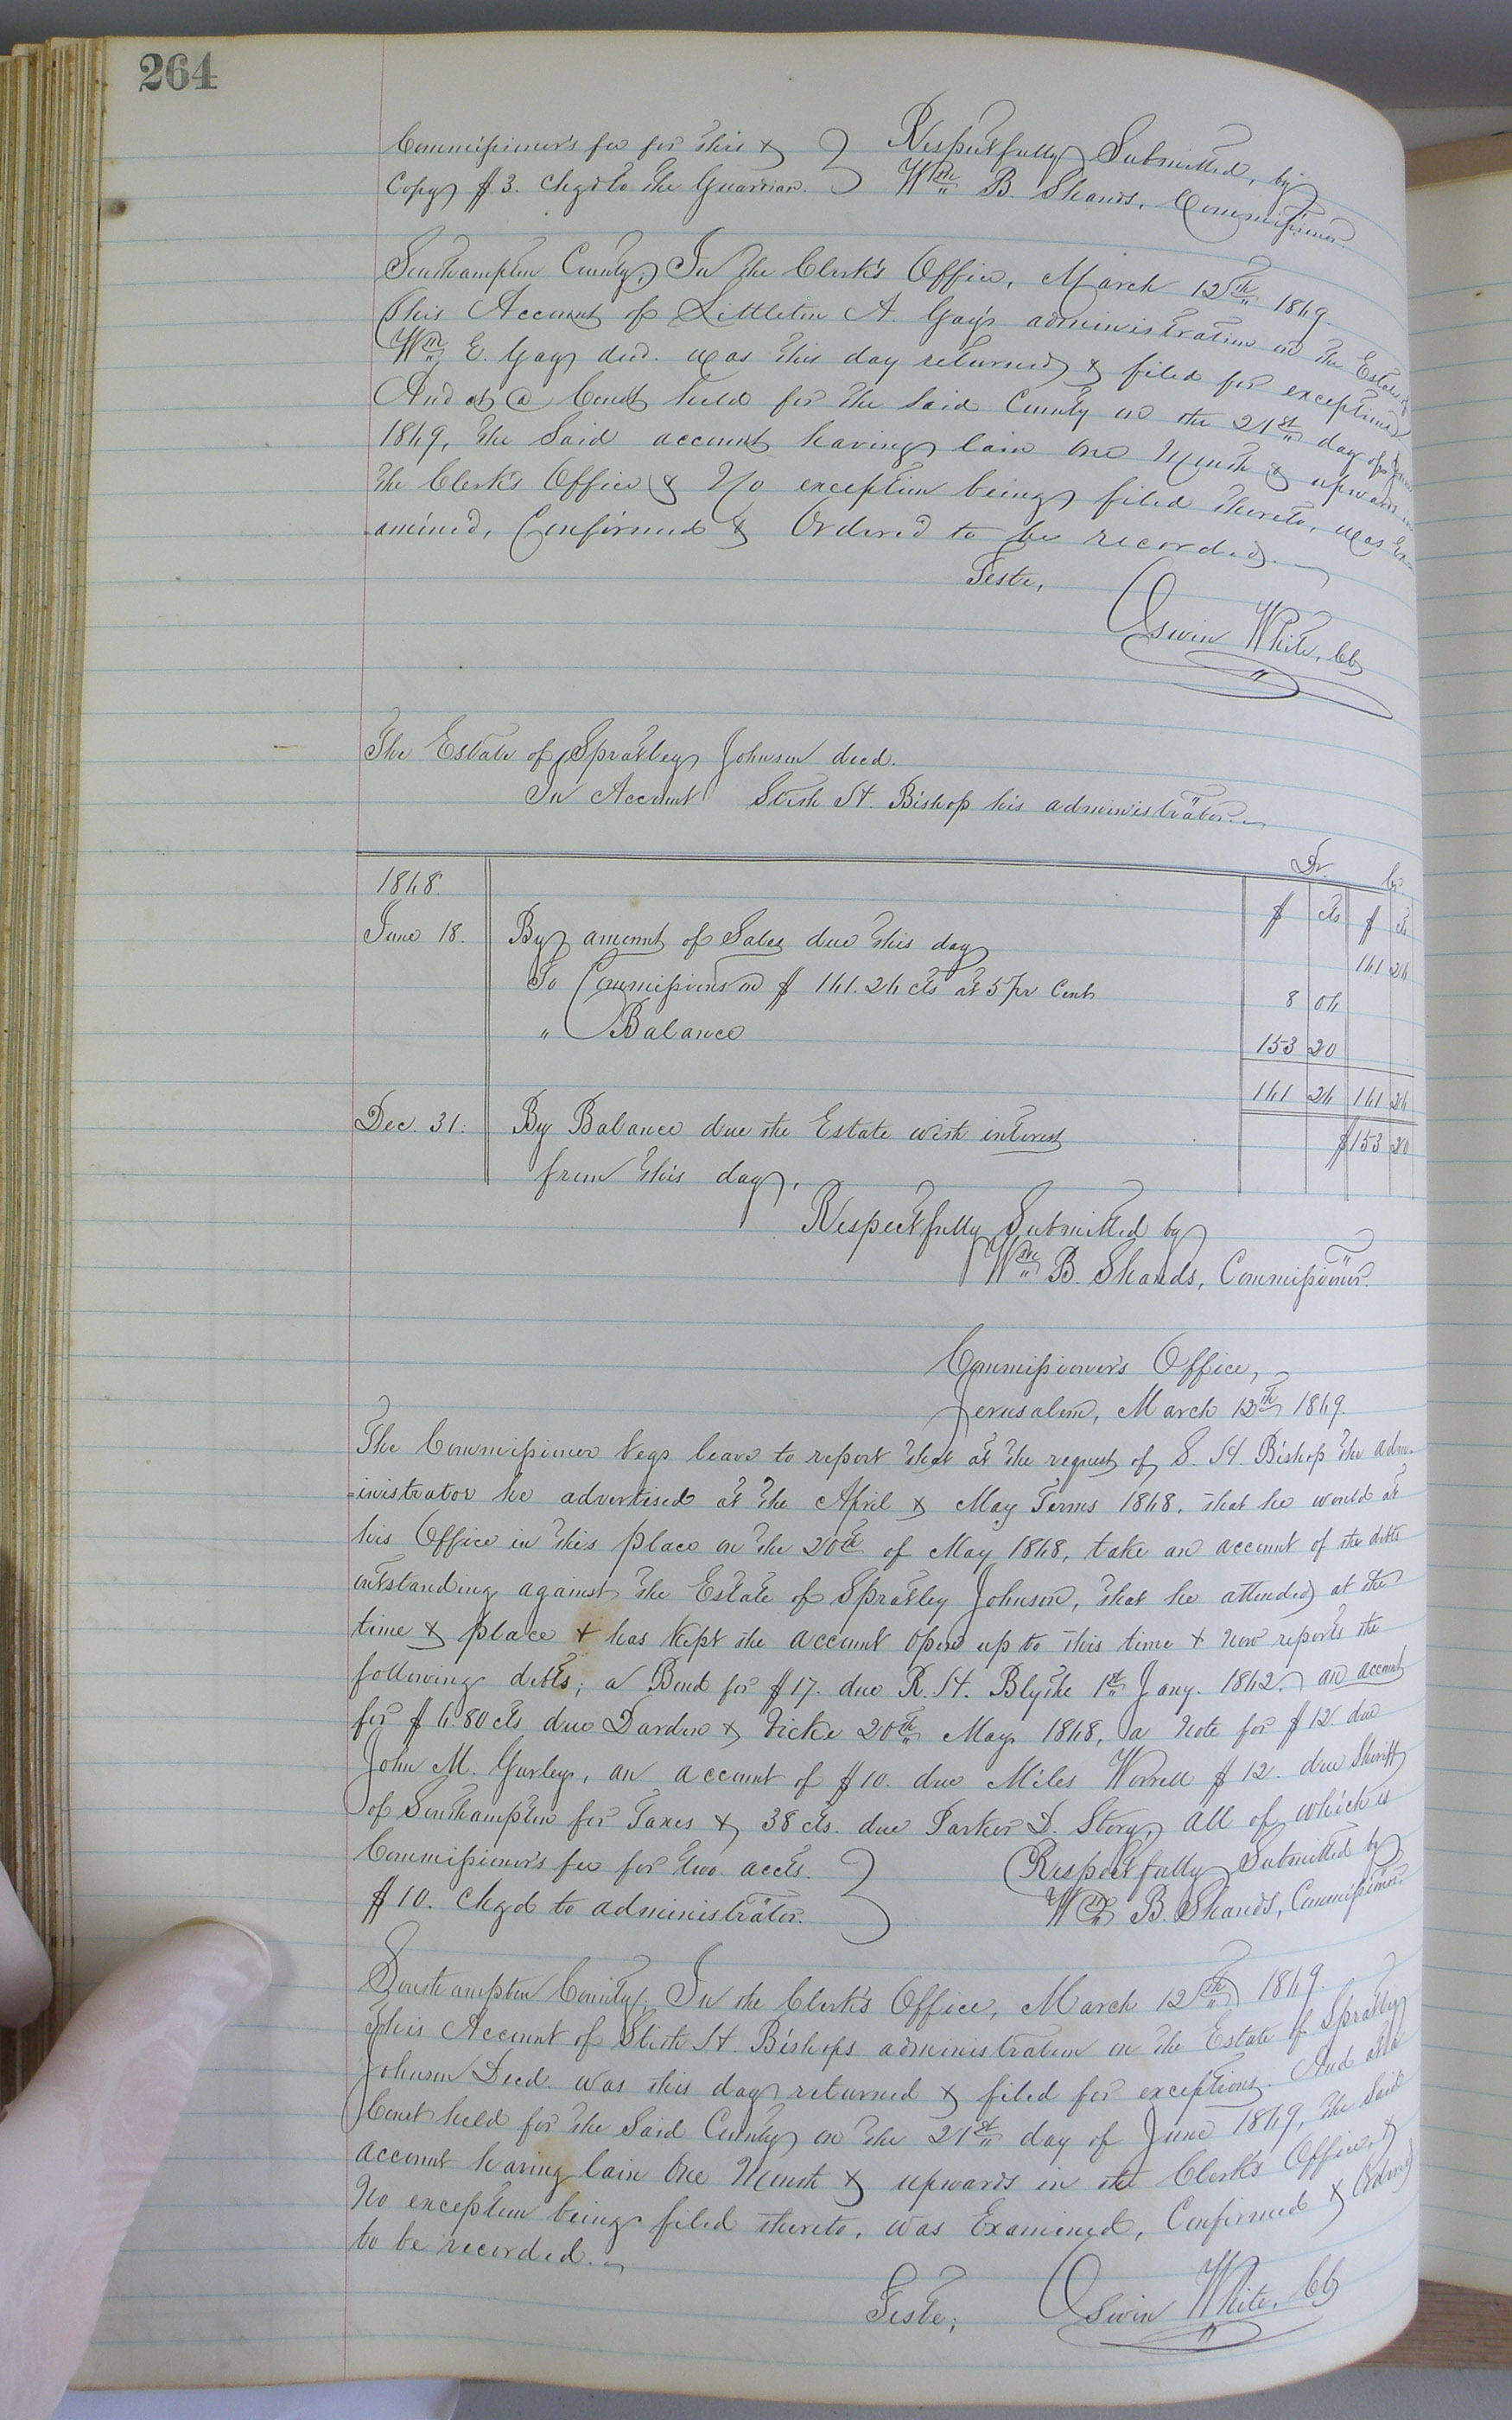 264
Commissioner's fee for this & } Respectfully Submitted, by
Copy $3. chgd to the Guardian. } Wm B. Shands, Commissioner.
Southampton County, In the Clerk's Office, March 12th 1869.
This Account of Littleton A. Gay's administration on the Estate of
Wm E. Gay decd. was this day returned & filed for exceptions
And at a Court held for the Said County on the 21st day of June
1869, the Said account having lain One Month & upwards in
the Clerk's Office & No exception being filed thereto, was Ex=
=amined, Confirmed & Ordered to be recorded.
Teste,
Oswin White,
The Estate of Spratley Johnson decd.
In Account Stith H. Bishop his administrator.
Dr. Cr
1868. $ cts $ cts
June 18. By amount of Sales due this day 161 26
To Commissions on $161.26 cts at 5 pr Cent 8 06
" Balance 153 20
161 26 161 26
Dec. 31. By Balance due the Estate with interest $153 20
from this day.
Respectfully Submitted by
Wm B. Shands, Commissioner.
Commissioner's Office,
Jerusalem, March 12th 1869.
The Commissioner begs leave to report that at the request of S. H. Bishop the adm=
=inistrator he advertised at the April & May Terms 1868, that he would at
his Office in this place on the 20th of May 1868, take an account of the debts
outstanding against the Estate of Spratley Johnson, that he attended at the
time & place & has kept the account open up to this time & now reports the
following debts; a Bond for $17. due R. H. Blythe 1st Jany. 1862. an account
for $6.80 cts due Darden & Vick 20th May 1868, a Note for $12. due
John M. Gurley, an account of $10. due Miles Worrell $12. due Sheriff
of Southampton for Taxes & 38 cts. due Parker D. Story, all of which is
Commissioner's fee for two accts. } Respectfully Submitted by
$10. chgd to administrator. } Wm B. Shands, Commissioner.
Southampton County. In the Clerk's Office, March 12th 1869.
This Account of Stith H. Bishops administration on the Estate of Spratley
Johnson Decd. was this day returned & filed for exceptions. And at a
Court held for the Said County on the 21st day of June 1869, the Said
account having lain One Month & upwards in the Clerk's Office, &
No exception being filed thereto, was Examined, Confirmed & Ordered
to be recorded.
Teste; Oswin White,